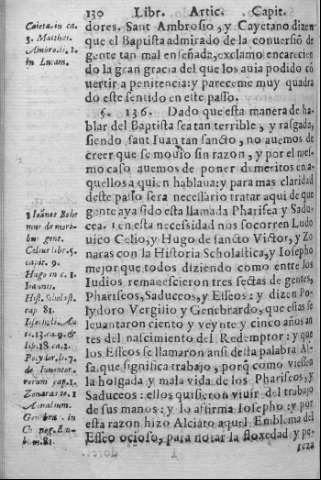 130 Libr. Artic. Capit.
dores. Sant Ambrosio, y Cayetano dizen
que el Baptista admirado de la conuersiõ de
gente tan mal enseñada, exclamo encarecien
do la gran gracia del que los auia podido cõ
uertir a penitencia: y pareceme muy quadra
do este sentido en este passo.
§. 136. Dado que esta manera de ha-
blar del Baptista sea tan terrible, y rasgada,
siendo sant Iuan tan sancto, no auemos de
creer que se mouio sin razon, y por el mes-
mo caso auemos de poner demeritos en a-
quellos a quien hablaua: y para mas claridad
deste passo sera necessario tratar aqui de que
gente aya sido esta llamada Pharisea y Sadu-
cea. en esta necessidad nos socorren Ludo
uico Celio, y Hugo de sancto Victor, y Zo
naras con la Historia Scholastica, y Iosepho
mejor que todos diziendo como entre los
Iudios remanescieron tres sectas de gentes,
Phariseos, Saduceos, y Esseos: y dizen Po-
lydoro Vergilio y Genebrardo, que estas se
leuantaron ciento y veynte y cinco años an
tes del nascimiento del Redemptor: y que
los Esseos se llamaron ansi desta palabra
que significa trabajo, porq̃ como viessen
la holgada y mala vida de los Phariseos, y
Saduceos: ellos quisieron viuir del trabajo
de sus manos: y lo affirma Iosepho: y por
esta razon hizo Alciato aquel Emblema del
Esseo ocioso, para notar la floxedad y
Caieta. in ca.
3. Matthei.
Ambrosi.
in Lucam.
Ioãnes Bohe
mus de mori-
bus gent.
Celius libr. 5.
capit. 9.
Hugo in c. 1.
Ioannis.
Hist. Scholast.
cap. 81.
lib. 18. ca. 2.
Polydor. li. 7.
de Inuento.
rerum cap. 1.
Zonaras to. 1
Annalium.
Genebra. in